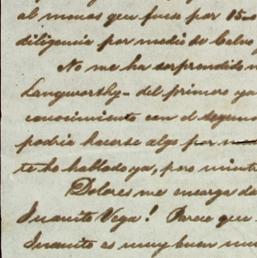 al menos que fuese por 15.0
diligencia por medio de Calvo y
No me ha sorprendido n
Langworthy- del primero ya
conocimiento con el segun
podria hacerse algo por
te he hablado ya, pero mient
Dolores me encarga da
Juanito Vega! Parece que
Juanito es muy buen mu